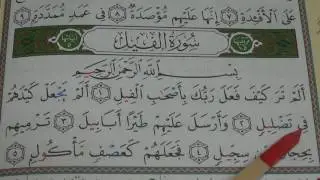 عَلَى الْأَفْـِٔدَةِ ٧ إِنَّهَا عَلَيْهِم مُّؤْصَدَةٌ ٨ فِي عَمَدٍ مُّمَدَّدَةٍ ٩
سُورَةُ الْفِيلِ
بِسْمِ اللَّهِ الرَّحْمَٰنِ الرَّحِيمِ
أَلَمْ تَرَ كَيْفَ فَعَلَ رَبُّكَ بِأَصْحَٰبِ الْفِيلِ ١ أَلَمْ يَجْعَلْ كَيْدَهُمْ
فِي تَضْلِيلٍ ٢ وَأَرْسَلَ عَلَيْهِمْ طَيْرًا أَبَابِيلَ ٣ تَرْمِيهِم
بِحِجَارَةٍ مِّن سِجِّيلٍ ٤ فَجَعَلَهُمْ كَعَصْفٍ مَّأْكُولٍ ٥